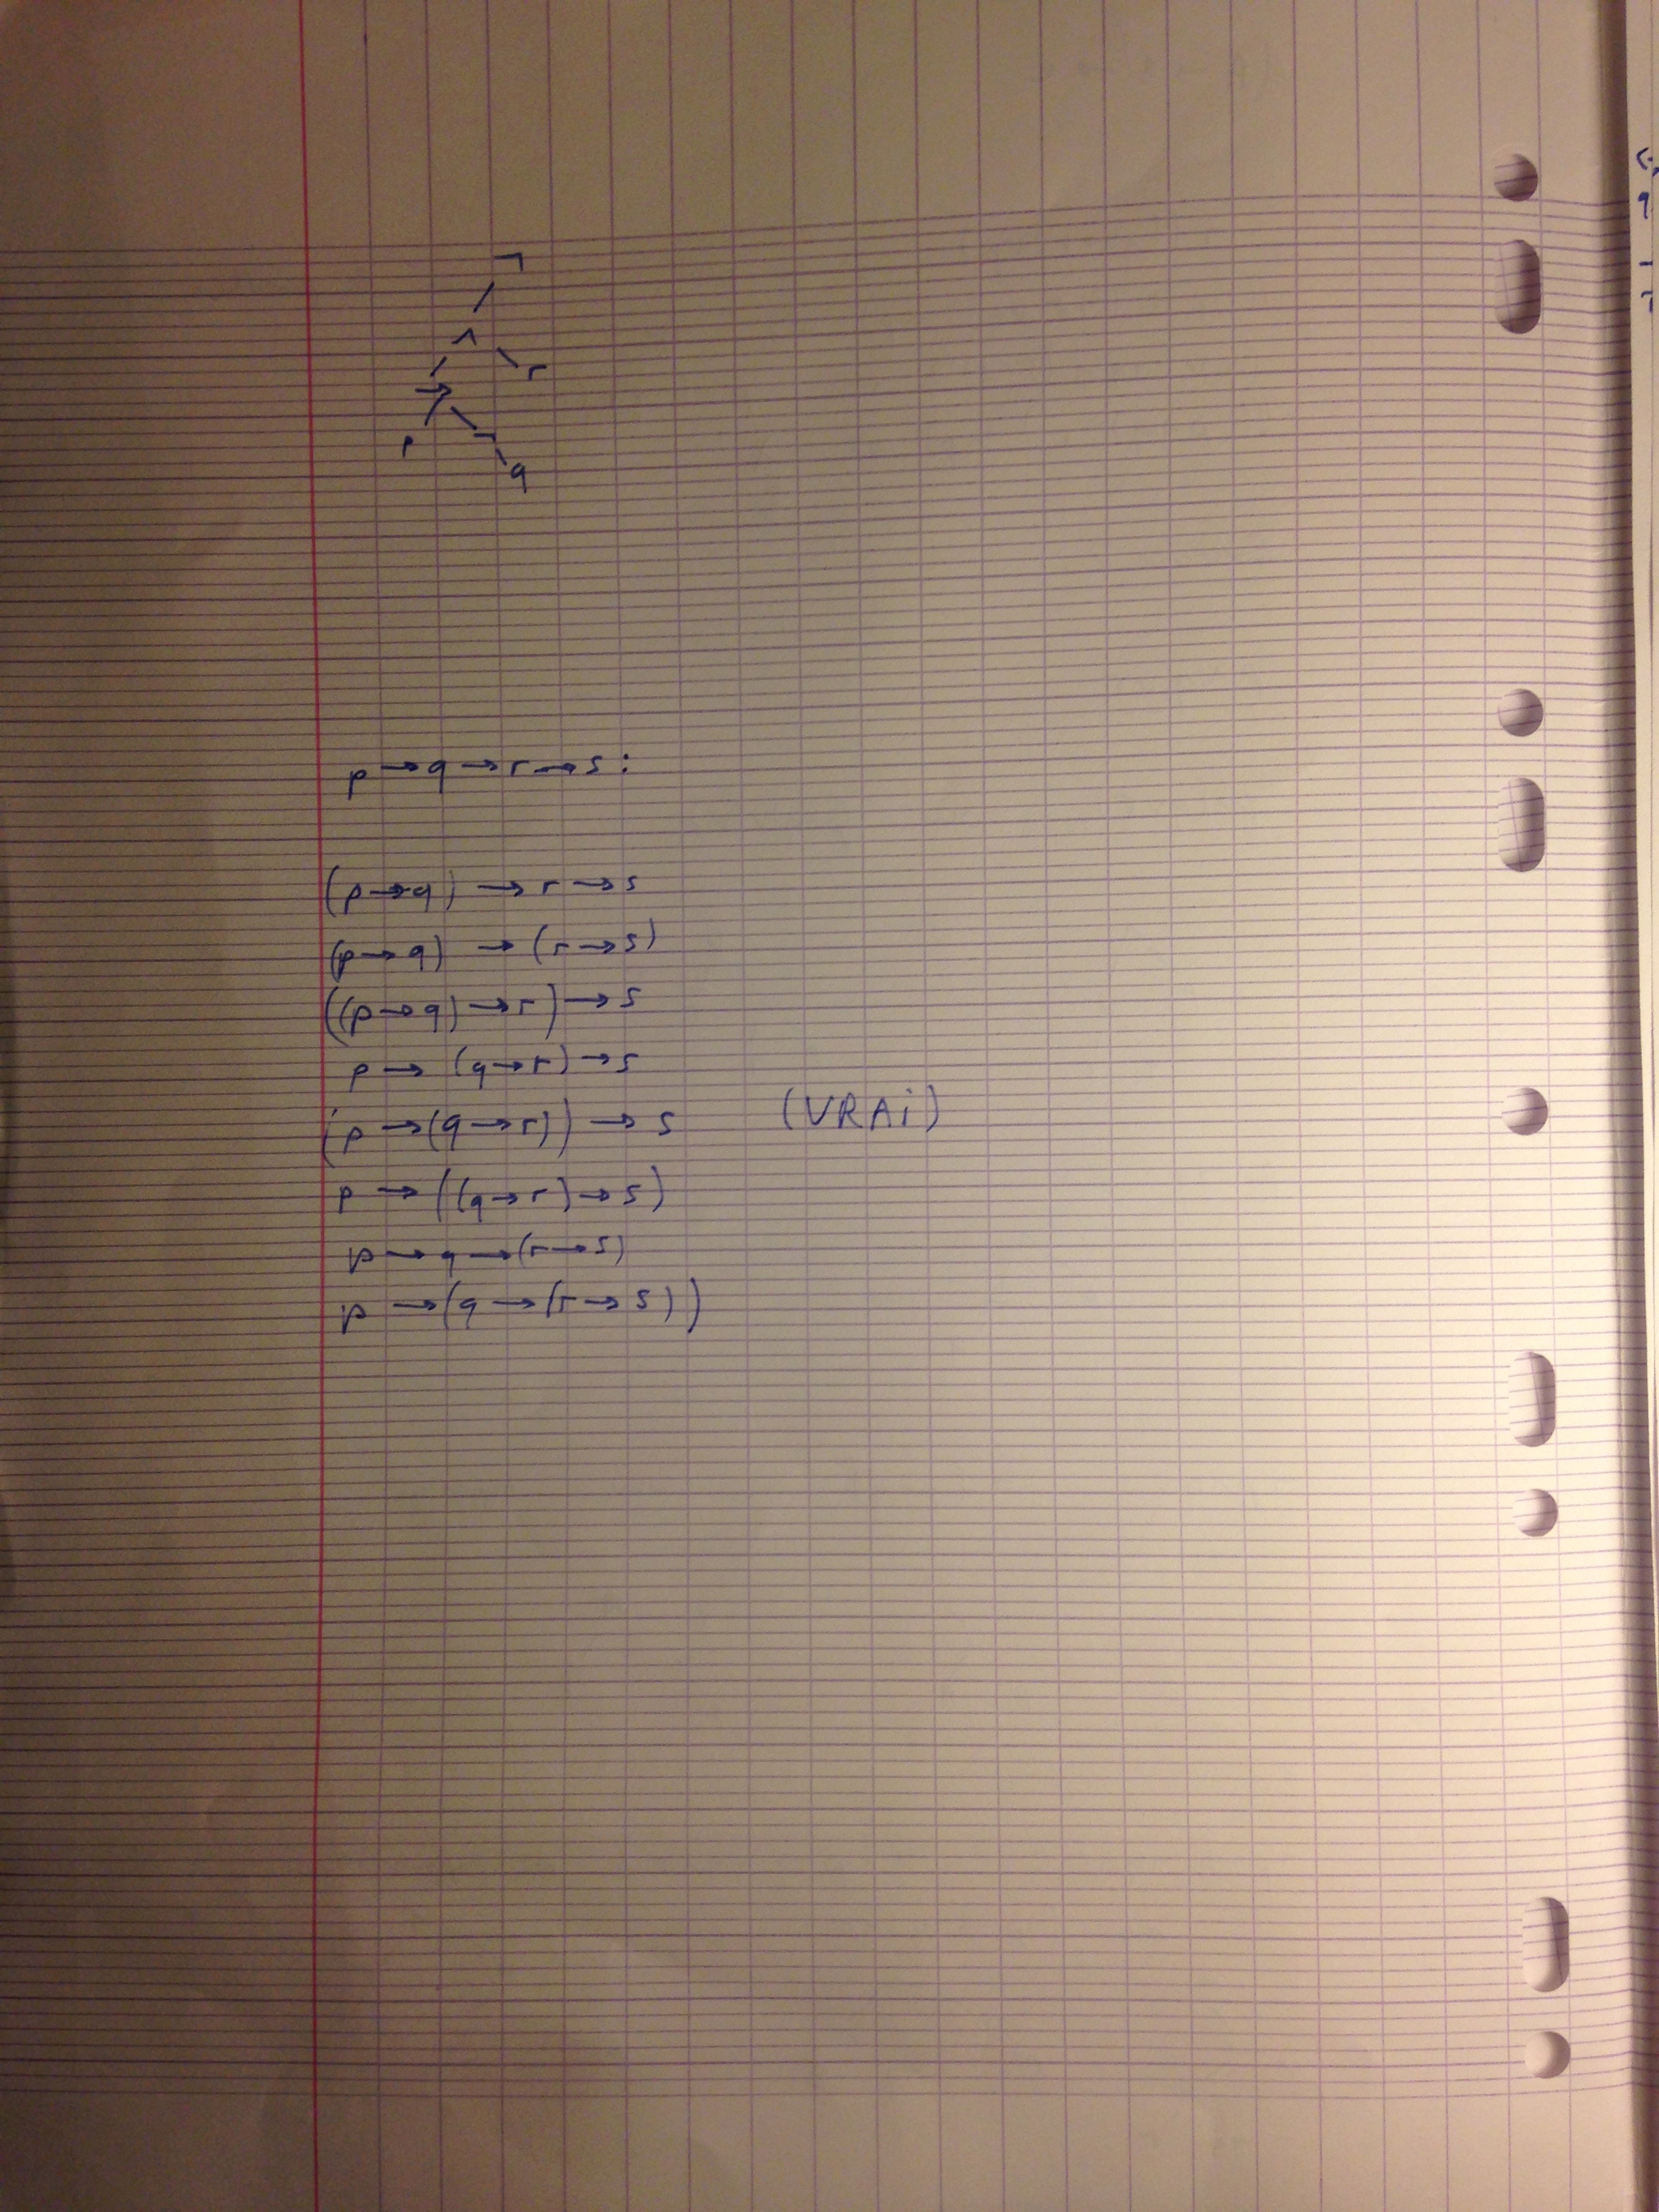 ¬
∧
→ r
p ¬
q
p → q → r → s :
(p → q) → r → s
(p → q) → (r → s)
((p → q) → r) → s
p → (q → r) → s
(p → (q → r)) → s (VRAi)
p → ((q → r) → s)
p → q → (r → s)
p → (q → (r → s))